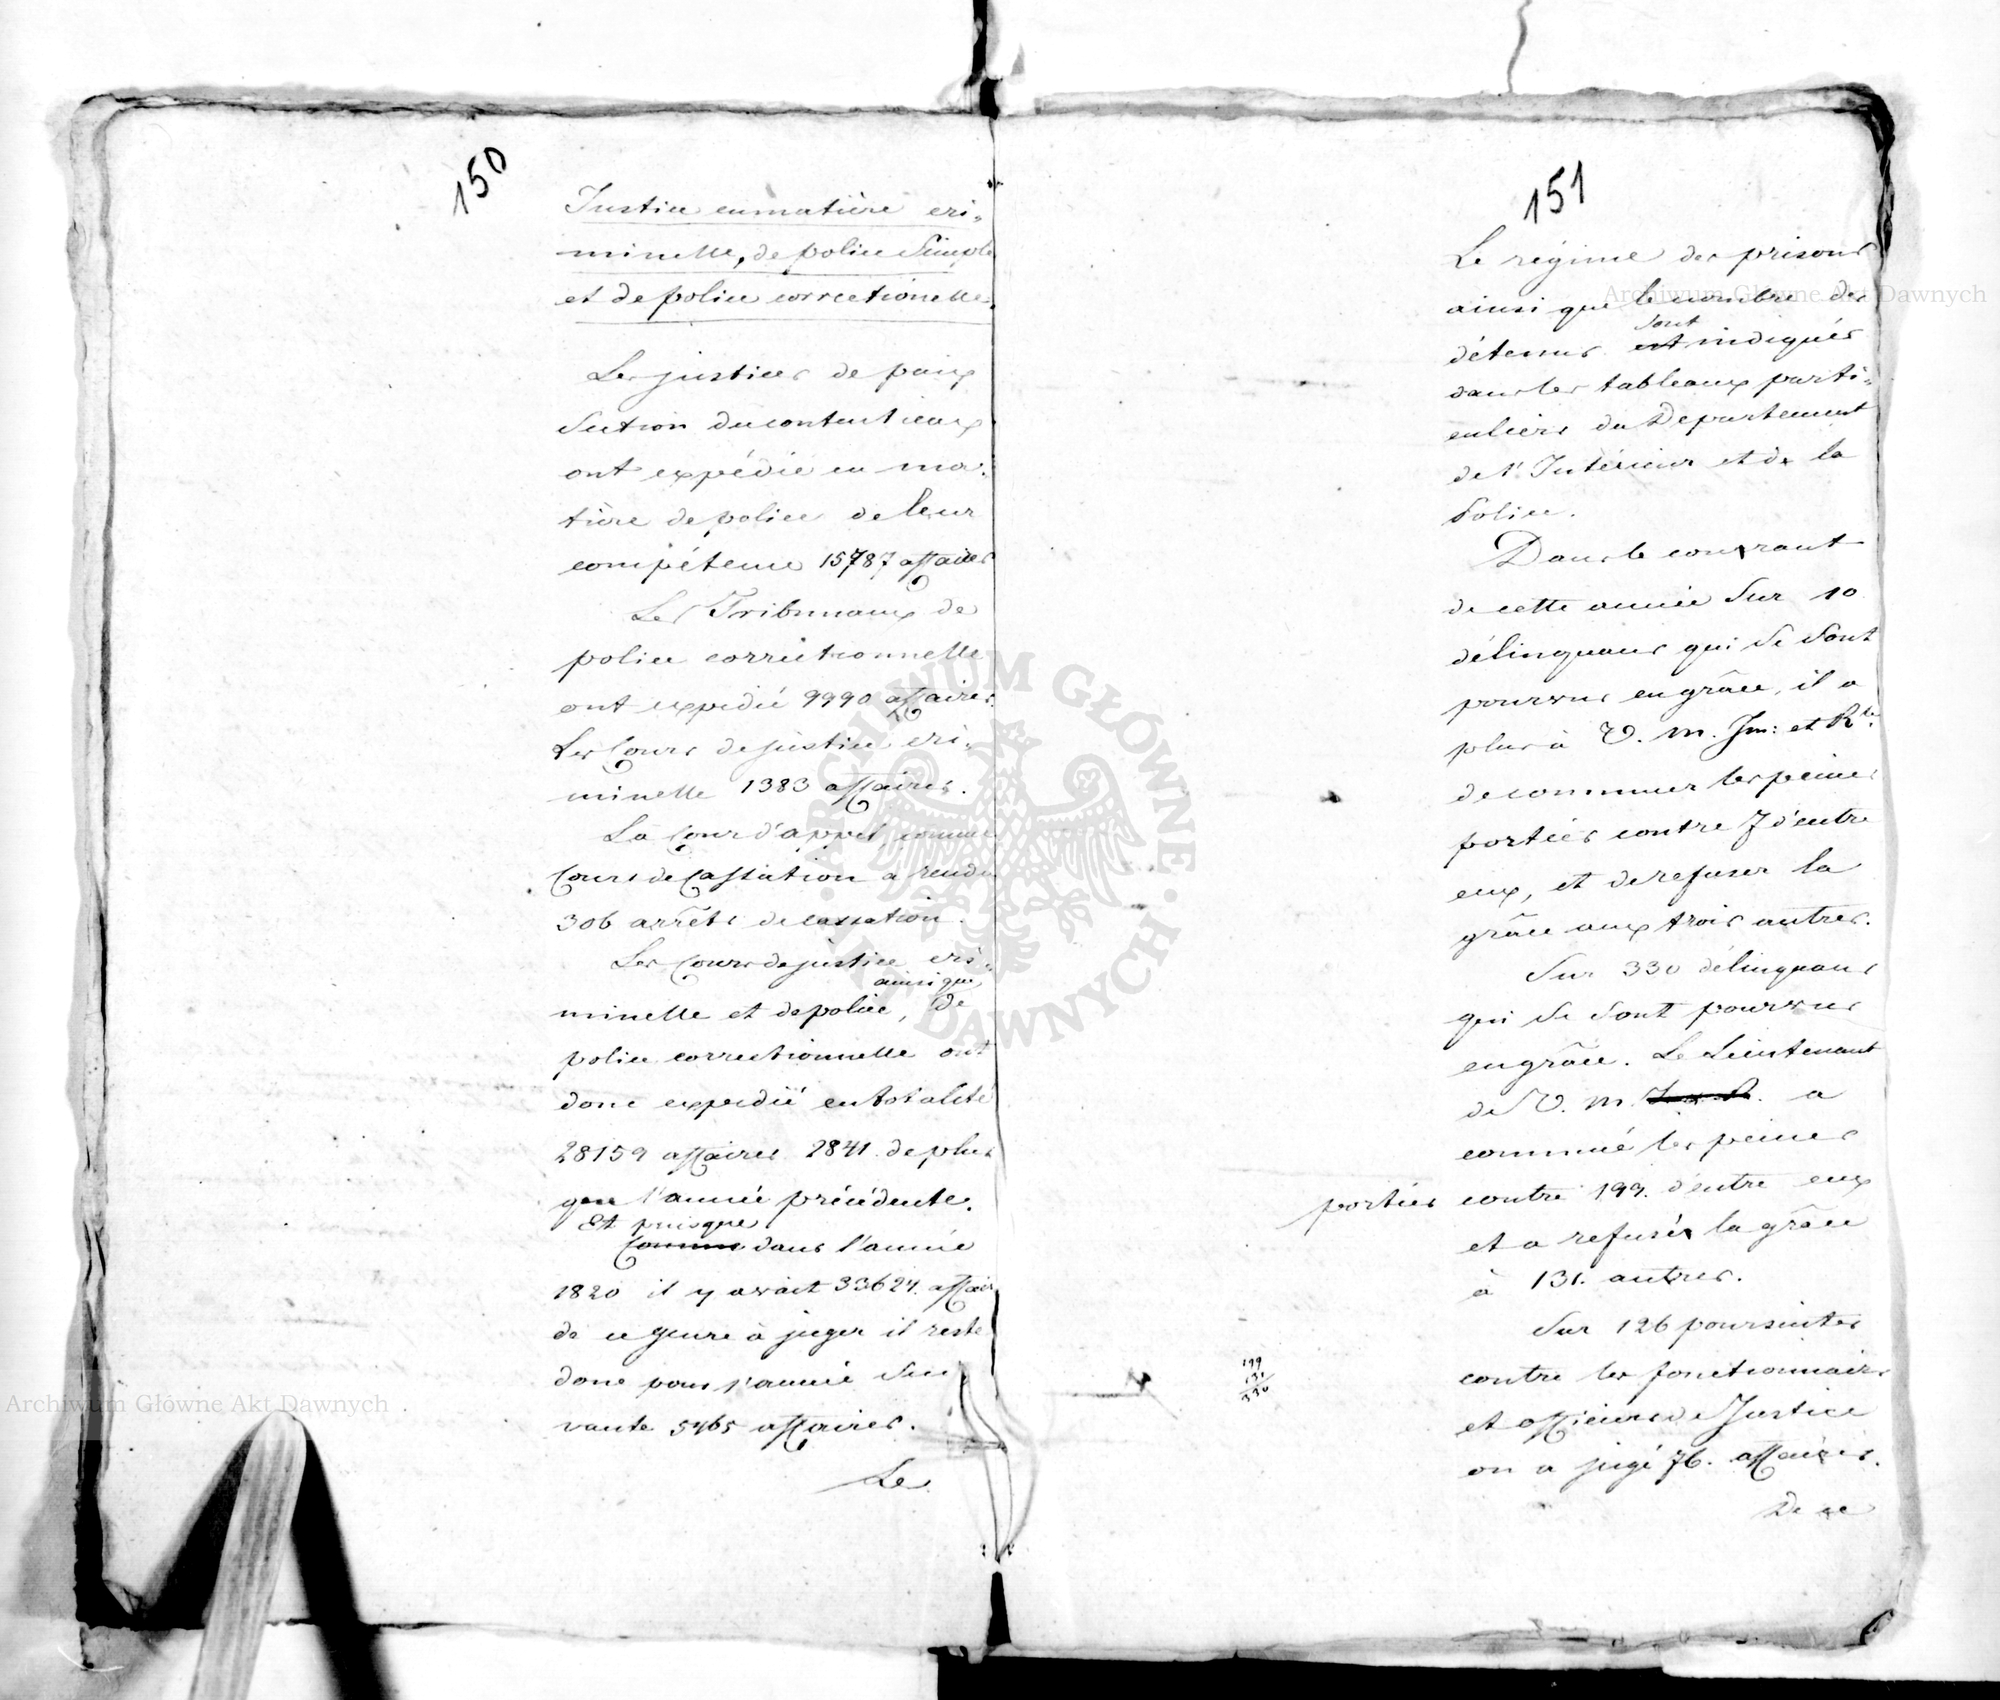 150
Justice en matière cri-
minelle, de police Simple
et de police correctionelle.
Les justices de paix
Section du contentieux
ont expédié en ma-
tière de police de leur
compétence 15787 affaires
Les Tribunaux de
police correctionnelle
ont expedié 9990 affaires.
Les Cours de justice cri-
minelle 1383 affaires.
La Cour d'appel, comme
Cour de Cassation a rendu
306 arrêts de cassation.
Les Cours de justice cri-
ainsi que
minelle et de police, de
police correctionnelle ont
donc expedié en totalité
28159 affaires 2841. de plus
que l'année précédente.
Et puisque
Comme dans l'année
1820 il y avait 33624. affair
de ce genre à juger il reste
donc pour l'année Sui
vante 5465 affaires.
Le
151
Le régime des prisons
ainsi que le nombre des
sont
détenus est indiqués
dans les tableaux parti-
culiers du Département
de l'Intérieur et de la
Police.
Dans le courrant
de cette année Sur 10
délinquans qui Se Sont
pourvus en grâce, il a
plus à V. M. Im: et Rle.
de commuer les peines
portées contre 7 d'entre
eux, et de refuser la
grâce aux trois autres.
Sur 330 délinquans
qui Se Sont pourvus
en grâce. Le Lieutenant
de V. M. a
commué les peines
portées contre 199. d'entre eux
et a refusé la grâce
à 131. autres.
Sur 126 poursuites
199
131
330
contre les fonctionnaires
et officiers de Justice
on a jugé 76. affaires.
De ce
Archiwum Główne Akt Dawnych
Archiwum Główne Akt Dawnych
ARCHIWUM GŁÓWNE AKT DAWNYCH